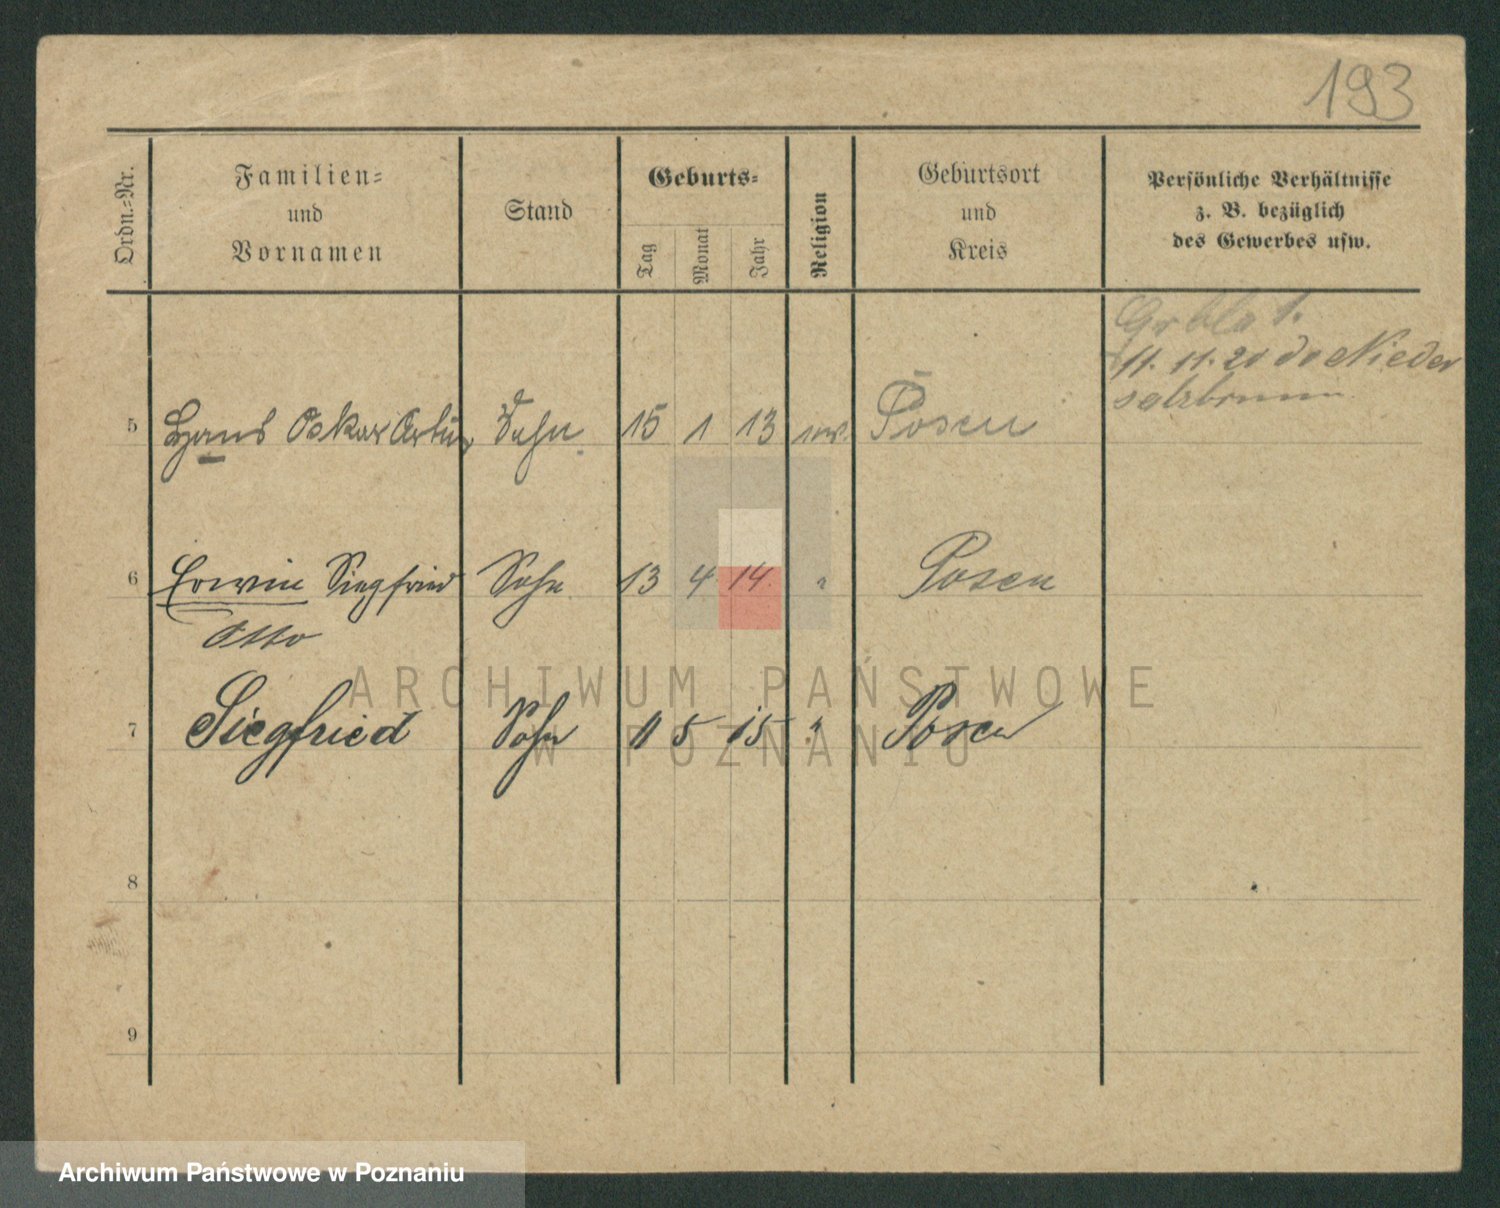 193
Ordn.=Nr.
Familien=
und
Vornamen
Stand
Geburts=
Tag
Monat
Jahr
Religion
Geburtsort
und
Kreis
Persönliche Verhältnisse
z. B. bezüglich
des Gewerbes usw.
11. 11. 20 Nieder
salzbrunn
5 Hans Oskar Artur Sohn 15 1 13 Posen
6 Erwin Siegfried Sohn 13 4 14. " Posen
Otto
7 Siegfried Sohn 11 5 15 " Posen
8
9
ARCHIWUM PAŃSTWOWE
W POZNANIU
Archiwum Państwowe w Poznaniu